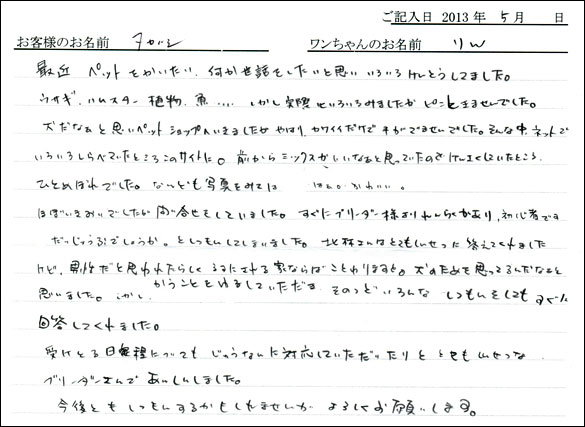 ご記入日 2013年 5月 日
お客様のお名前 ワンちゃんのお名前 りん
最近 ペットをかいたい、何か世話をしたいと思い いろいろ けんとうしてました。
ウサギ、ハムスター 植物、魚.... しかし実際といろいろみましたが ピンときませんでした。
犬だなぁと思いペットショップへいきましたが やはり、カワイイだけで 手がでませんでした。そんな中 ネットで
いろいろしらべていたところ このサイトに。 前からミックスがいいなぁと思っていたので けんさくしていたところ、
ひとめぼれでした。 なんども写真をみては ほんと かわいい。
問い合せをしていました。 すぐにブリーダー様よりれんらくがあり、初心者です
だいじょうぶでしょうか。と しつもんしてしまいました。 とてもしんせつに 答えてくれました
けど、男性だと思われたらしく 家ならば ことわりますと。犬のためを思ってるんだなぁと
思いました。しかし、 かうことをゆるしていただき そのつど いろんな しつもんをしても すぐに
回答してくれました。
受けとる日程についても じゅうなんに対応していただいたりと とてもしんせつな
ブリーダーさんで あんしんしました。
今後とも しつもんするかもしれませんが よろしくお願いします。